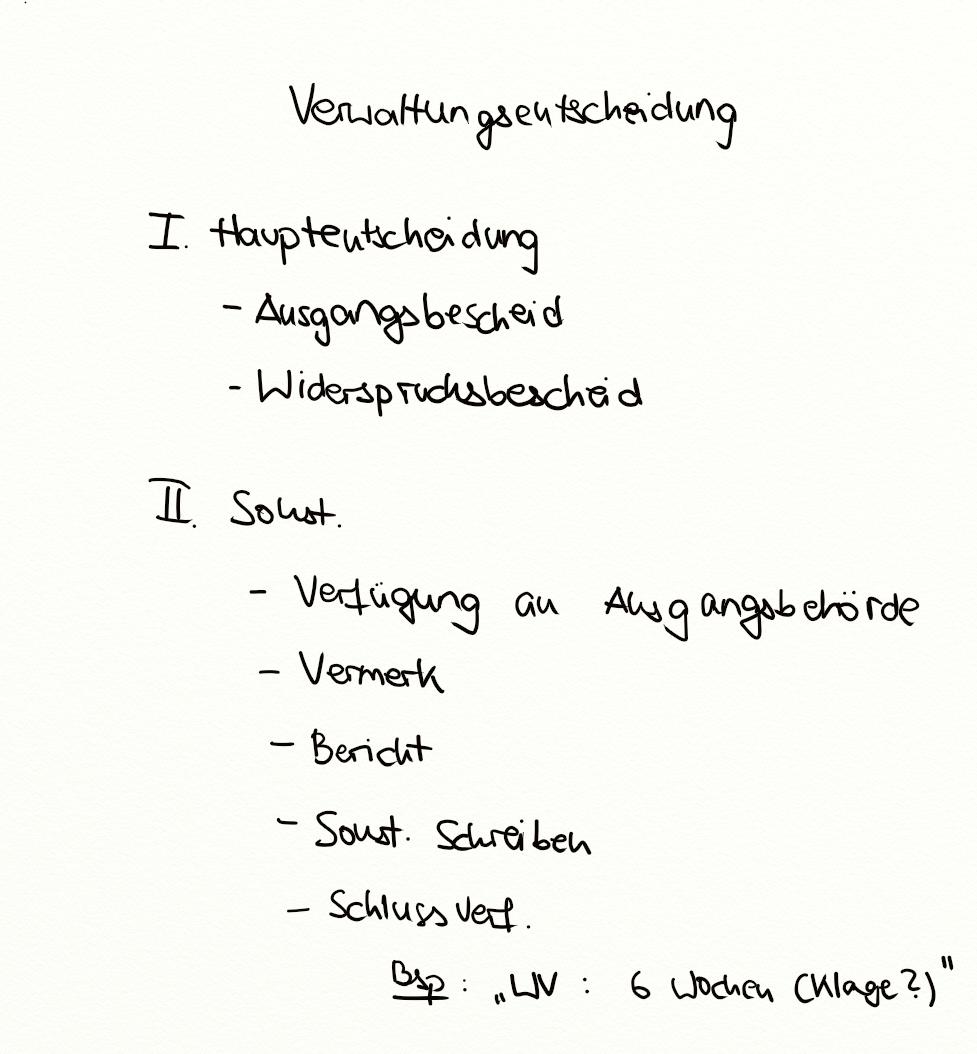 Verwaltungsentscheidung
I. Hauptentscheidung
- Ausgangsbescheid
- Widerspruchsbescheid
II. Sonst.
- Verfügung an Ausgangsbehörde
- Vermerk
- Bericht
- Sonst. Schreiben
- Schlussverf.
Bsp : „WV : 6 Wochen (Klage?)"